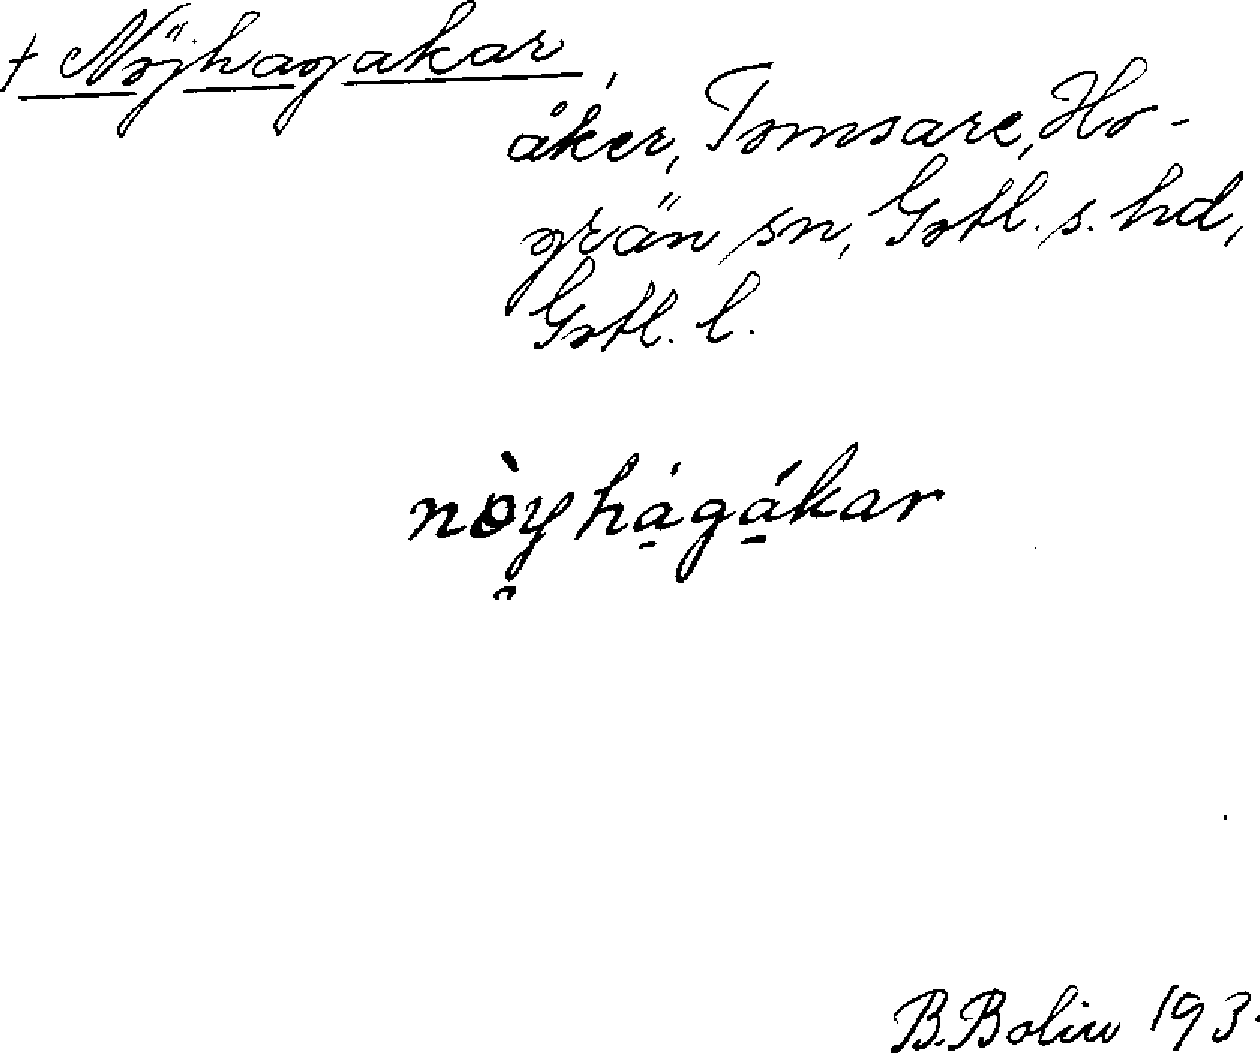 + Nöjhagakar,
åker, Tomsare, Ho-
grän sn, Gotl. s. hd,
Gotl. l.
nòyhágákar
B. Bolin 193